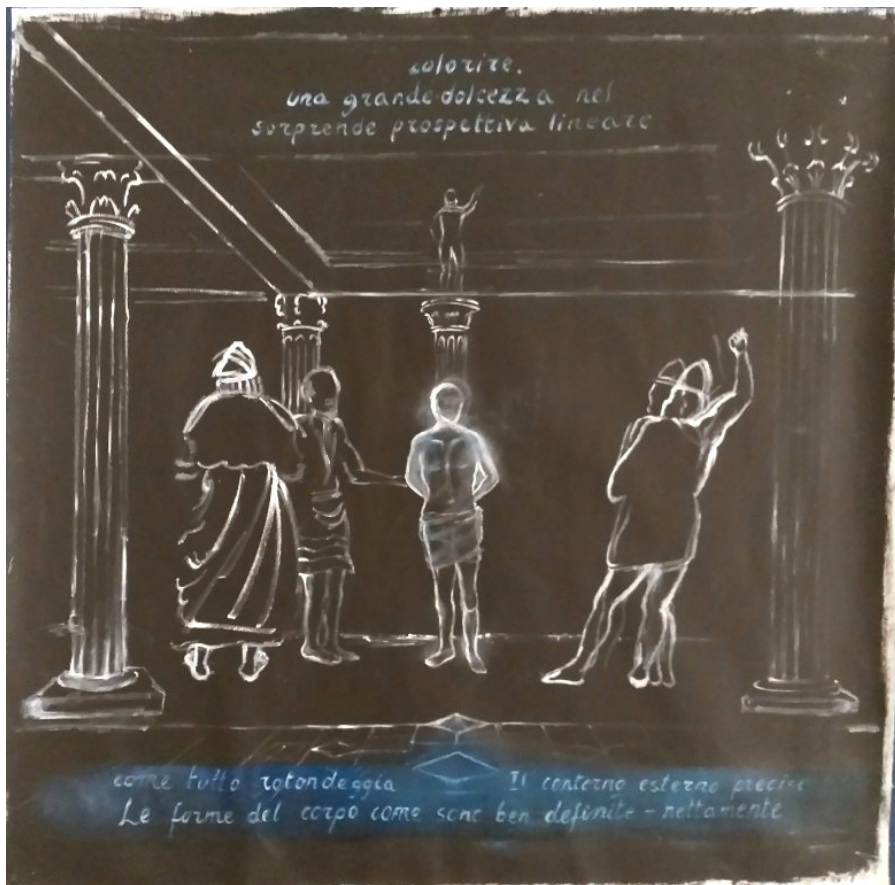 colorire.
una grande dolcezza nel
sorprende prospettiva lineare
come tutto rotondeggia Il contorno esterno preciso
Le forme del corpo come sono ben definite - nettamente